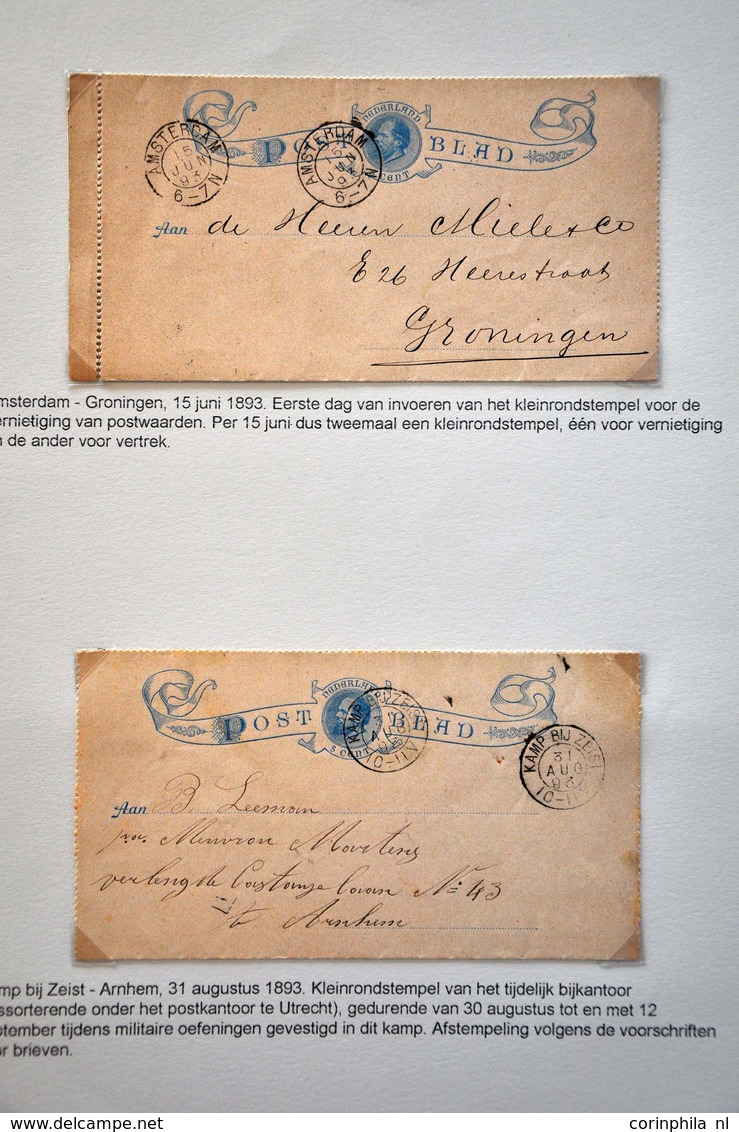 NEDERLAND
POSTBLAD
CENT
AMSTERDAM
15
JUN
93
6-7N
AMSTERDAM
6-7N
Aan de Heeren Miele & Co
E 26 Heerestraat
Groningen
msterdam - Groningen, 15 juni 1893. Eerste dag van invoeren van het kleinrondstempel voor de
ernietiging van postwaarden. Per 15 juni dus tweemaal een kleinrondstempel, één voor vernietiging
n de ander voor vertrek.
NEDERLAND
POSTBLAD
5 CENT
KAMP BIJ ZEIST
AUG
93
10-11V
KAMP BIJ ZEIST
31
AUG
93
10-11V
Aan B. Leeman
p/a. Mevrouw Martens
verlengde Castanje laan No: 43
te Arnhem
mp bij Zeist - Arnhem, 31 augustus 1893. Kleinrondstempel van het tijdelijk bijkantoor
essorterende onder het postkantoor te Utrecht), gedurende van 30 augustus tot en met 12
eptember tijdens militaire oefeningen gevestigd in dit kamp. Afstempeling volgens de voorschriften
or brieven.
DELCAMPE.NET
corinphila nl